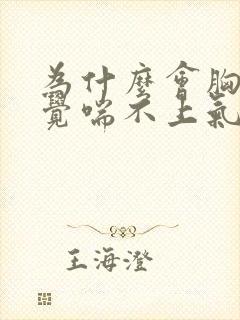 為什麼會胸
覺喘不上氣
王海澄